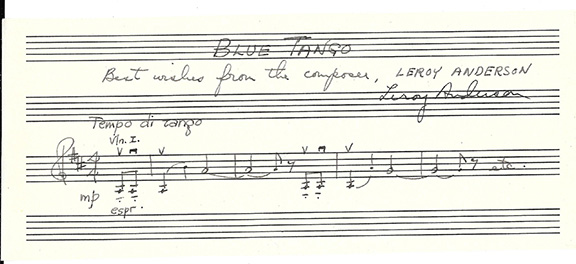 BLUE TANGO
Best wishes from the composer, LEROY ANDERSON
Leroy Anderson
Tempo di tango
Vln. I.
mp
espr.
etc.